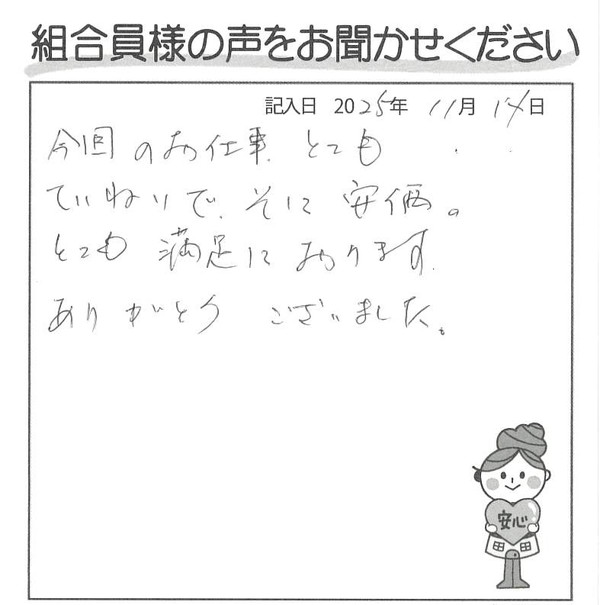 組合員様の声をお聞かせください
記入日 2025年 11月 14日
今回のお仕事、とても
ていねいで、そに安価。
とても満足しております。
ありがとうございました。
安心